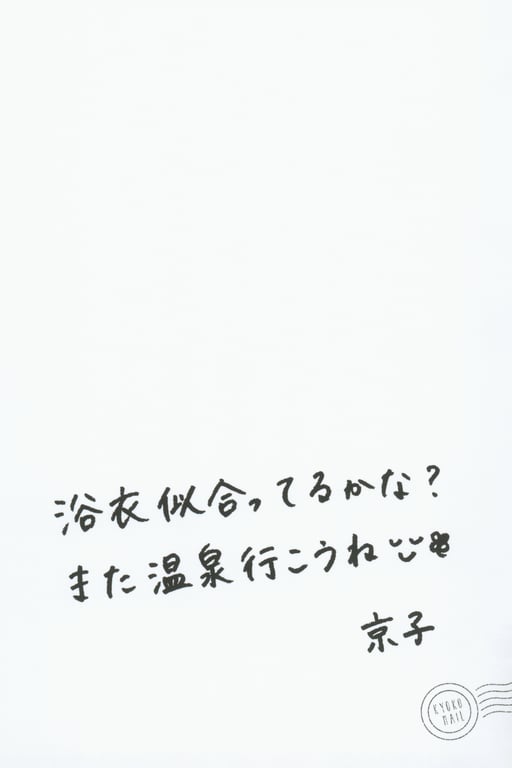 浴衣似合ってるかな?
また温泉行こうね
京子
KYOKO
MAIL